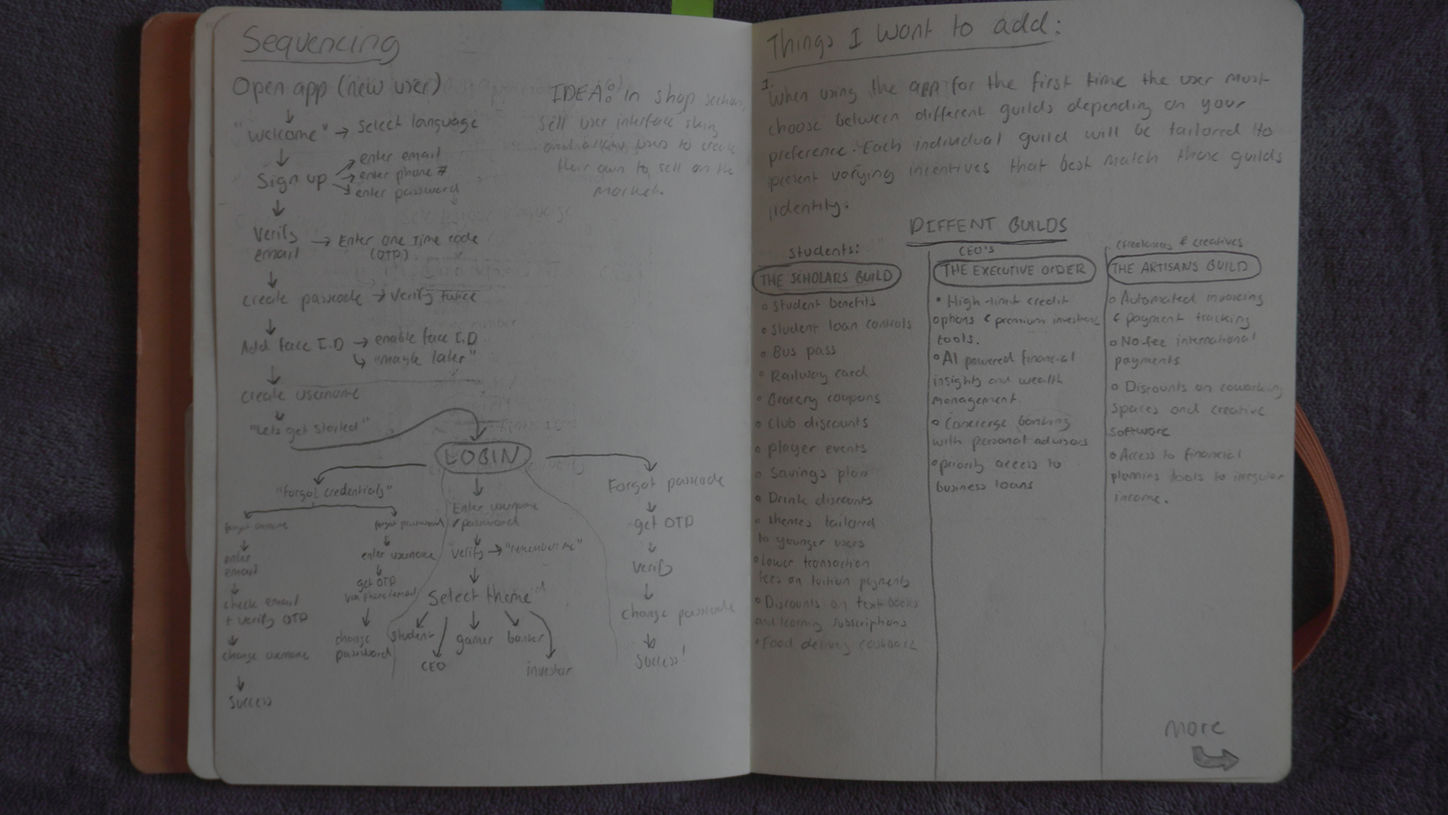 Sequencing
Open app (new user)
"Welcome" → Select language
Sign up → enter email
→ enter phone #
→ enter password
Verify email → Enter one time code
(OTP)
create passcode → verify twice
Add face I.D → enable face I.D
↳ "maybe later"
create username
"Lets get started"
LOGIN
"forgot credentials"
forgot username
enter
email
check email
+ verify OTP
change username
Success
forgot password
enter username
get OTP
via phone/email
change
password
Enter username
/ password
verify → "remember me"
Select theme
student
CEO
gamer
banker
investor
Forgot passcode
get OTP
verify
change passcode
success!
IDEA: in shop section,
sell user interface skins
and allow users to create
their own to sell on the
market.
Things I want to add:
1.
When using the app for the first time the user must
choose between different guilds depending on your
preference. Each individual guild will be tailored to
present varying incentives that best match those guilds
identity.
DIFFENT BUILDS
Students:
THE SCHOLARS BUILD
Student benefits
Student loan controls
Bus pass
Railway card
Grocery coupons
Club discounts
player events
Savings plan
Drink discounts
themes tailored
to younger users
lower transaction
fees on tuition payments
Discounts on text books
and learning subscriptions
Food delivery cashback
CEO'S
THE EXECUTIVE ORDER
High-limit credit
options & premium investment
tools.
AI powered financial
insights and wealth
management.
Concierge banking
with personal advisors
priority access to
business loans
freelancers & creatives
THE ARTISANS BUILD
Automated invoicing
& payment tracking
No fee international
payments
Discounts on coworking
spaces and creative
software
Access to financial
planning tools to irregular
income.
More